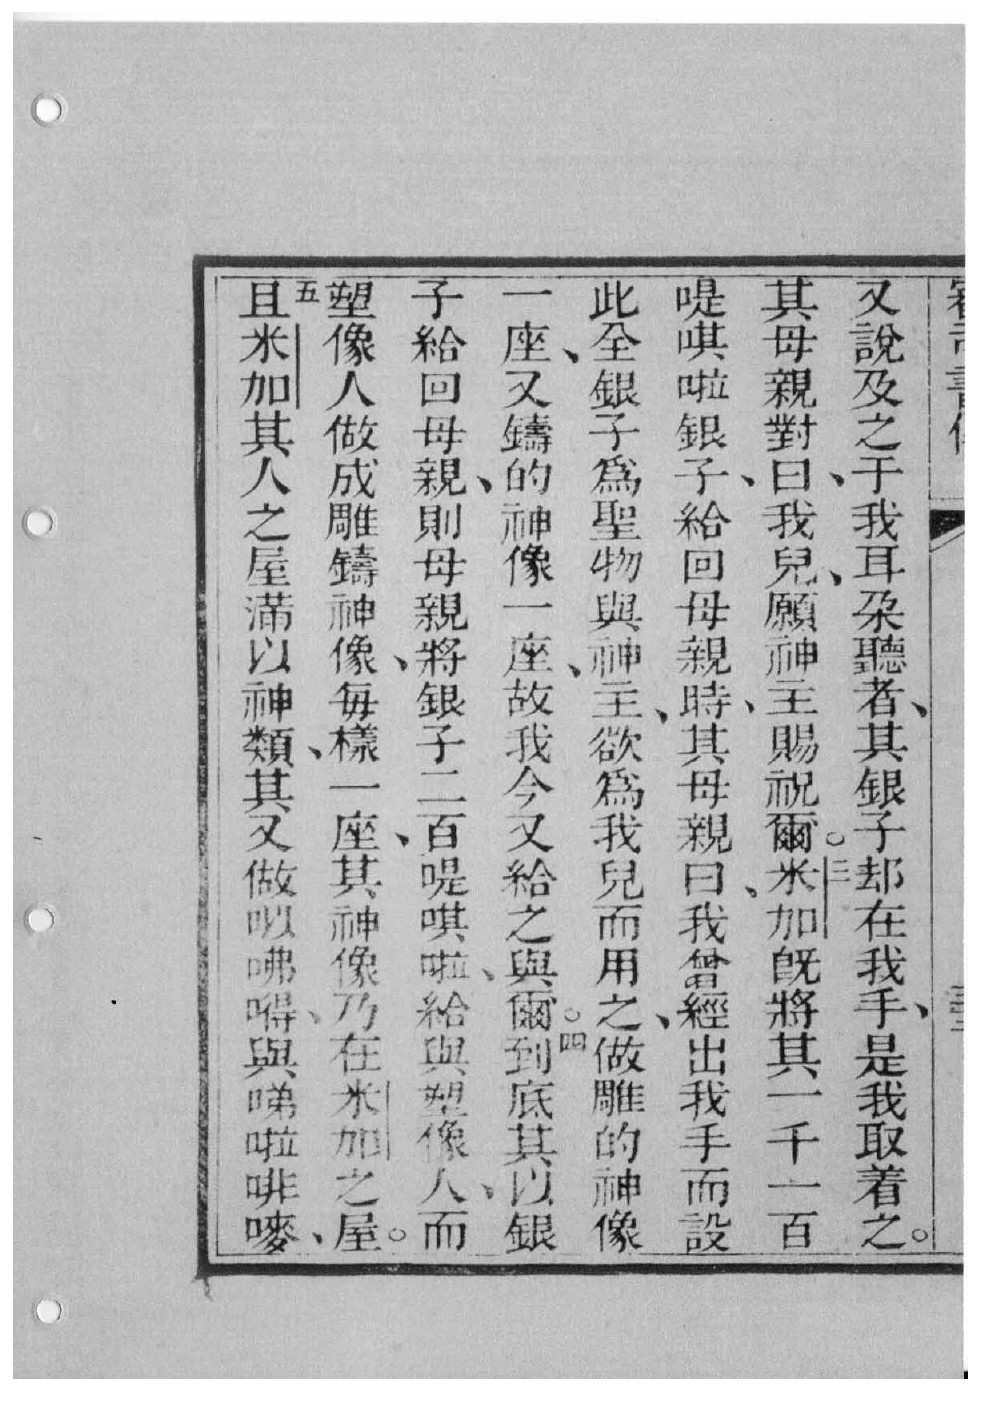 又說及之于我耳朶聽者、其銀子却在我手、是我取着之。
其母親對曰、我兒、願神主賜祝爾。三米加旣將其一千一百
㖷唭啦銀子、給回母親時、其母親曰、我曾經出我手而設
此全銀子爲聖物與神主、欲爲我兒而用之、做雕的神像
一座、又鑄的神像一座、故我今又給之與爾。四到底其以銀
子給回母親、則母親將銀子二百㖷唭啦、給與塑像人、而
塑像人做成雕鑄神像、每樣一座、其神像乃在米加之屋。
五且米加其人之屋滿以神類、其又做㕥咈嘚、與㖒啦啡嘜、